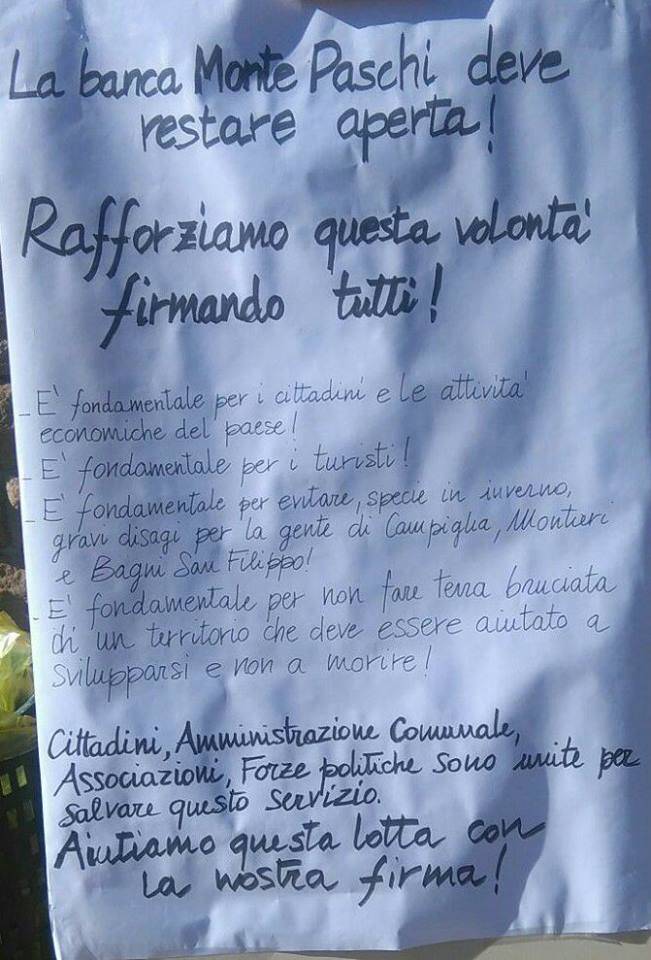 La banca Monte Paschi deve
restare aperta!
Rafforziamo questa volontà
firmando tutti!
- E' fondamentale per i cittadini e le attività
economiche del paese!
- E' fondamentale per i turisti!
- E' fondamentale per evitare, specie in inverno,
gravi disagi per la gente di Campiglia, Montieri
e Bagni San Filippo!
- E' fondamentale per non fare terra bruciata
di un territorio che deve essere aiutato a
svilupparsi e non a morire!
Cittadini, Amministrazione Comunale,
Associazioni, Forze politiche sono unite per
salvare questo servizio.
Aiutiamo questa lotta con
la nostra firma!